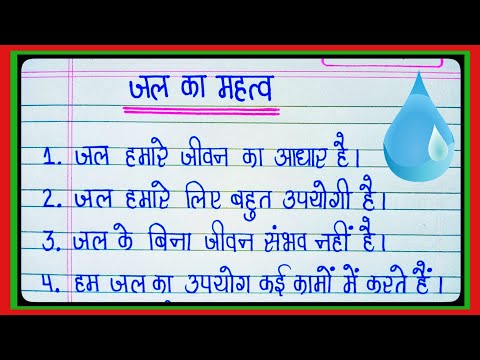 जल का महत्व
1. जल हमारे जीवन का आधार है।
2. जल हमारे लिए बहुत उपयोगी है।
3. जल के बिना जीवन संभव नहीं है।
4. हम जल का उपयोग कई कामों में करते हैं।